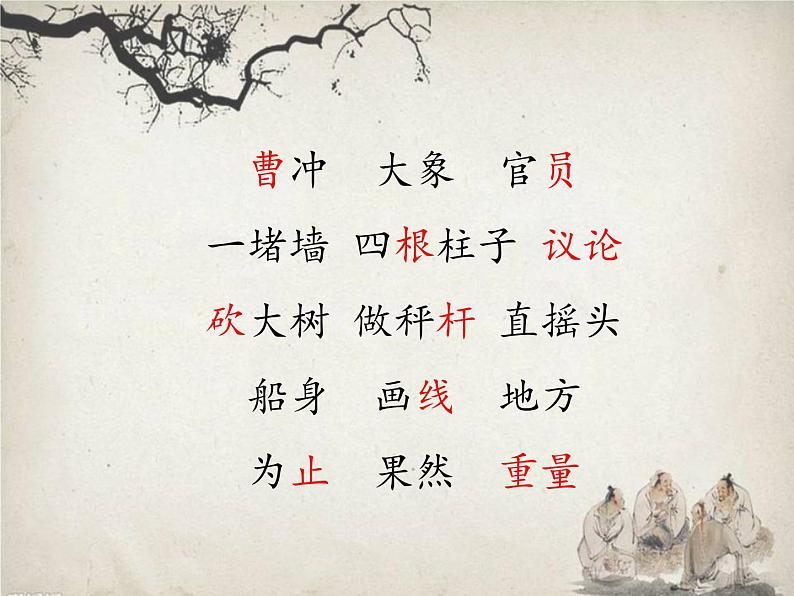 曹冲 大象 官员
一堵墙 四根柱子 议论
砍大树 做秤杆 直摇头
船身 画线 地方
为止 果然 重量